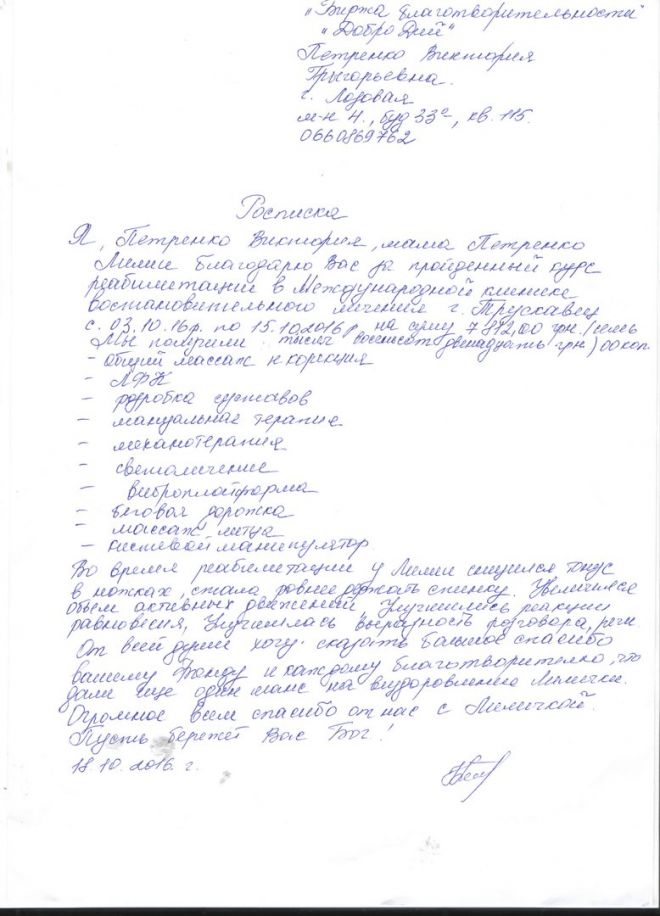 "Биржа благотворительности"
"ДоброДий"
Петренко Виктория
Григорьевна.
г. Лозовая
м-н 4., буд 33а, кв. 115.
0660869762
Росписка
Я, Петренко Виктория, мама Петренко
Лилии благодарю Вас за пройденный курс
реабилитации в Международной клинике
востановительного лечения г. Трускавец
с. 03.10.16р. по 15.10.2016р, на суму 7 812,00 грн. (семь
Мы получили: тысяч восемсот двенадцать грн.) 00 коп.
- общий массаж и корекция
- ЛФК
- розробка суставов
- мануальная терапия
- механотерапия
- светолечение
- виброплатформа
- беговая дорожка
- массаж лица
- кистевой манипулятор.
Во время реабилитации у Лилии снизился тонус
в ножках, стала ровнее держать спинку. Увеличился
объем активных движений, Улучшились реакции
равновесия, Улучшилась выразность розговора, речи
От всей души хочу сказать большое спасибо
вашему Фонду и каждому благотворителю, что
дали еще один шанс на выздоровление Лилички.
Огромное всем спасибо от нас с Лиличкой.
Пусть бережет Вас Бог!
18.10.2016 г.